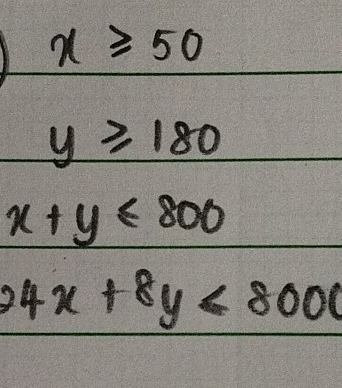 x ⩾ 50
y ⩾ 180
x + y ⩽ 800
24x + 8y ⩽ 8000